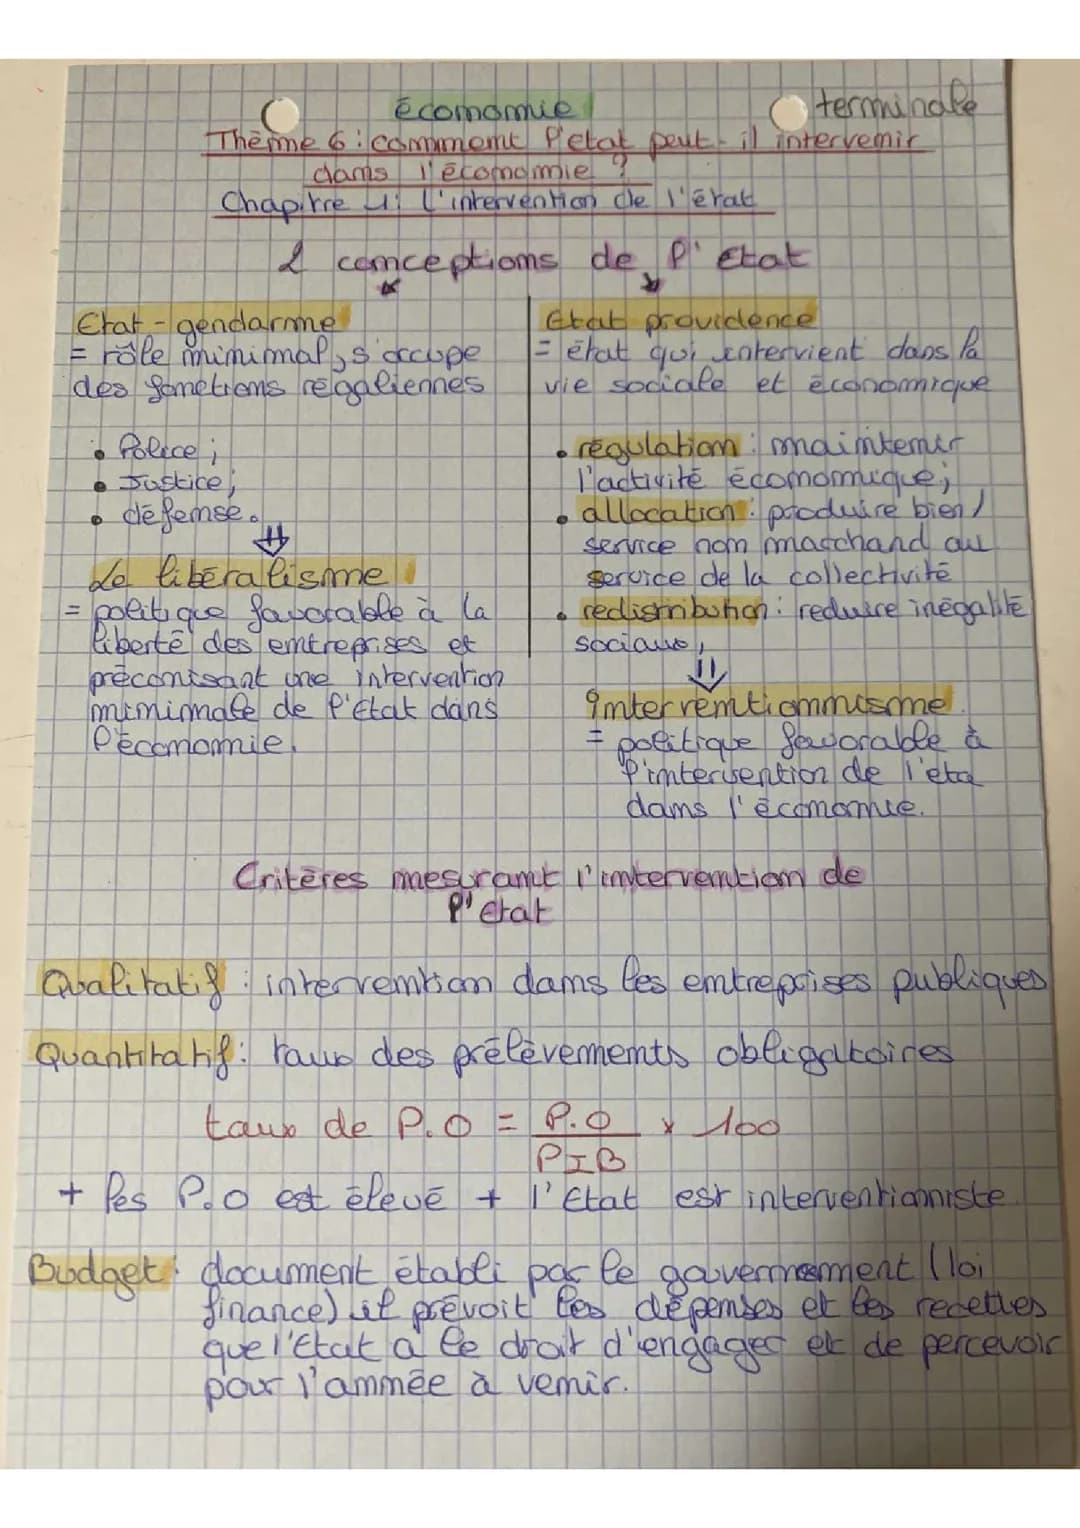 économie
terminale
Thème 6 : comment l'etat peut-il intervenir
dans l'économie ?
Chapitre 1: L'intervention de l'état
2 conceptions de l'Etat
Etat-gendarme
= rôle minimal, s'occupe
des fonctions régaliennes
• Police ;
• Justice ;
• défense.
⇓
Le libéralisme
= politique favorable à la
liberté des entreprises et
préconisant une intervention
minimale de l'Etat dans
l'économie.
Etat providence
= état qui intervient dans la
vie sociale et économique
• régulation : maintenir
l'activité économique ;
• allocation : produire bien /
service non marchand au
service de la collectivité
• redistribution : reduire inégalité
sociaux,
⇓
Interventionnisme
= politique favorable à
l'intervention de l'eta
dans l'économie.
Critères mesurant l'intervention de
l'état
Qualitatif : intervention dans les entreprises publiques
Quantitatif : taux des prélèvements obligatoires
taux de P.O = P.O / PIB x 100
+ les P.O est élevé + l'Etat est interventionniste.
Budget : document établi par le gouvernement (loi
finance) il prévoit les dépenses et les recettes
que l'Etat a le droit d'engager et de percevoir
pour l'année à venir.